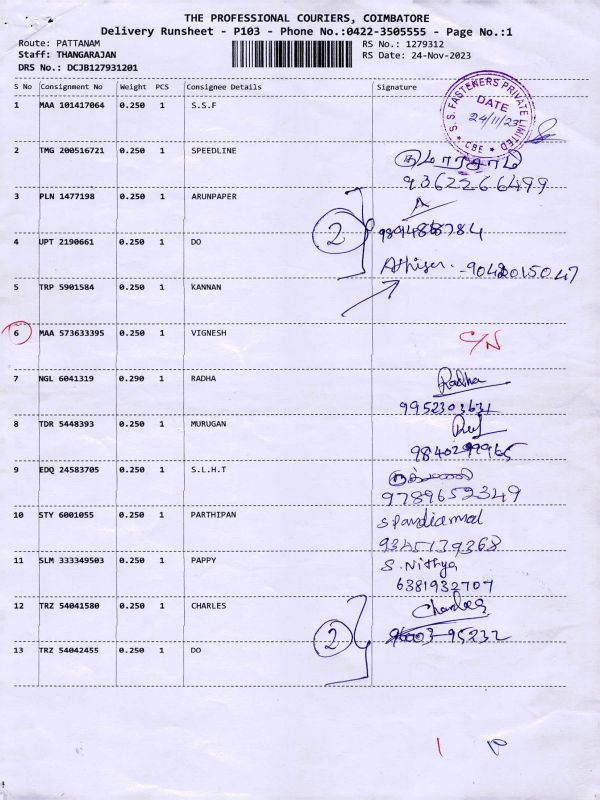 THE PROFESSIONAL COURIERS, COIMBATORE
Delivery Runsheet - P103 - Phone No.:0422-3505555 - Page No.:1
Route: PATTANAM
RS No.: 1279312
Staff: THANGARAJAN
RS Date: 24-Nov-2023
DRS No.: DCJB127931201
S No Consignment No Weight PCS Consignee Details Signature
S. S. FASTENERS PRIVATE LIMITED
DATE
24/11/23
* CBE *
1 MAA 101417064 0.250 1 S.S.F
2 TMG 200516721 0.250 1 SPEEDLINE
9362266499
3 PLN 1477198 0.250 1 ARUNPAPER
2
4 UPT 2190661 0.250 1 DO
5 TRP 5901584 0.250 1 KANNAN
6 MAA 573633395 0.250 1 VIGNESH C/N
7 NGL 6041319 0.290 1 RADHA Radha
9952303631
8 TDR 5448393 0.250 1 MURUGAN
9 EDQ 24583705 0.250 1 S.L.H.T
9789652349
10 STY 6001055 0.250 1 PARTHIPAN
9345139368
11 SLM 333349503 0.250 1 PAPPY S. Nithya
6381932707
12 TRZ 54041580 0.250 1 CHARLES Charles
95232
2
13 TRZ 54042455 0.250 1 DO